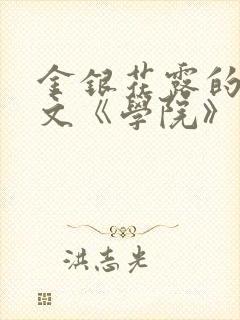 金銀花露的
文《學院》
洪志光